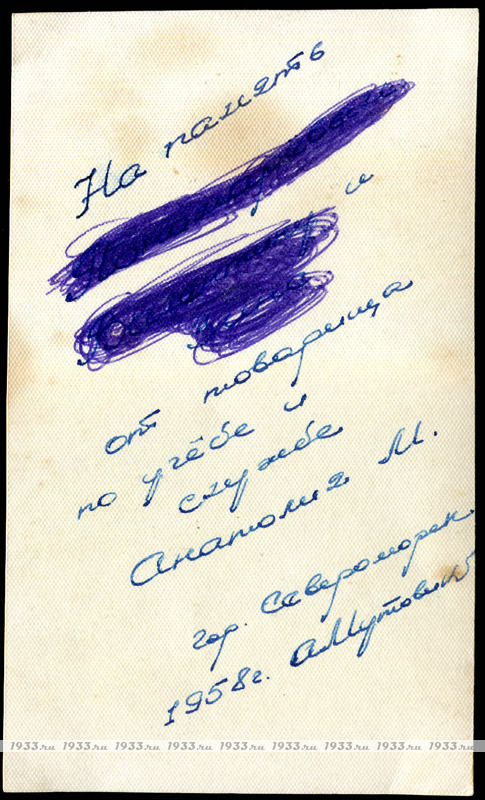 На память
и
от товарища
по учёбе и
службе
Анатолия М.
гор. Североморск
1958г. АМутовин
1933.ru 1933.ru 1933.ru 1933.ru 1933.ru 1933.ru 1933.ru 1933.ru 1933.ru